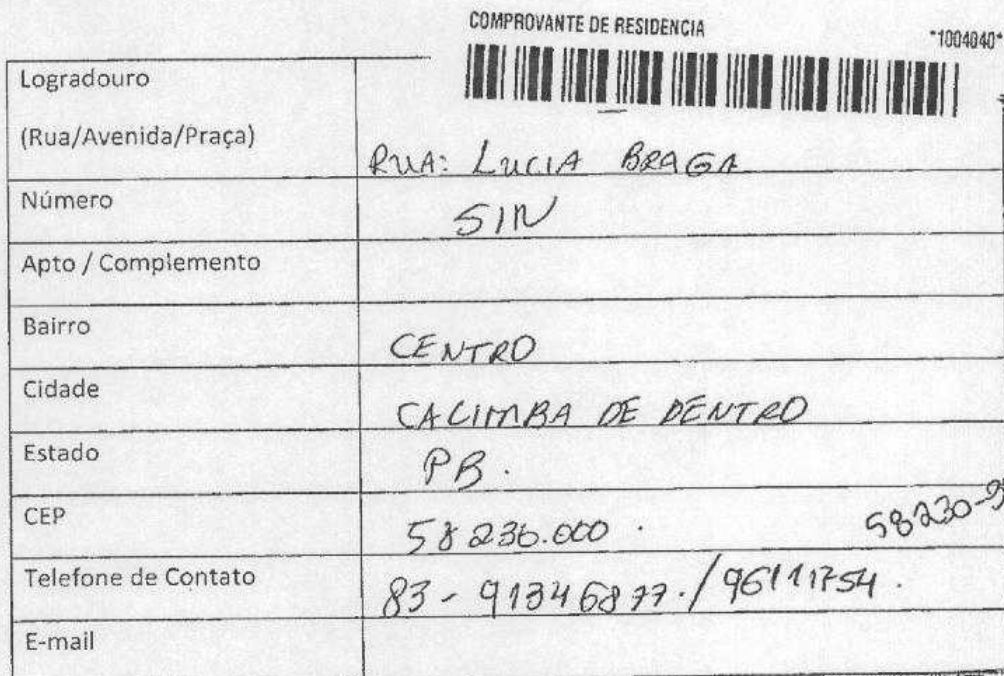 COMPROVANTE DE RESIDENCIA
*1004040*
Logradouro
(Rua/Avenida/Praça)
RUA: LUCIA BRAGA
Número
S/N
Apto / Complemento
Bairro
CENTRO
Cidade
CACIMBA DE DENTRO
Estado
PB.
CEP
58230.000.
58230-9
Telefone de Contato
83-91346877./96111754.
E-mail